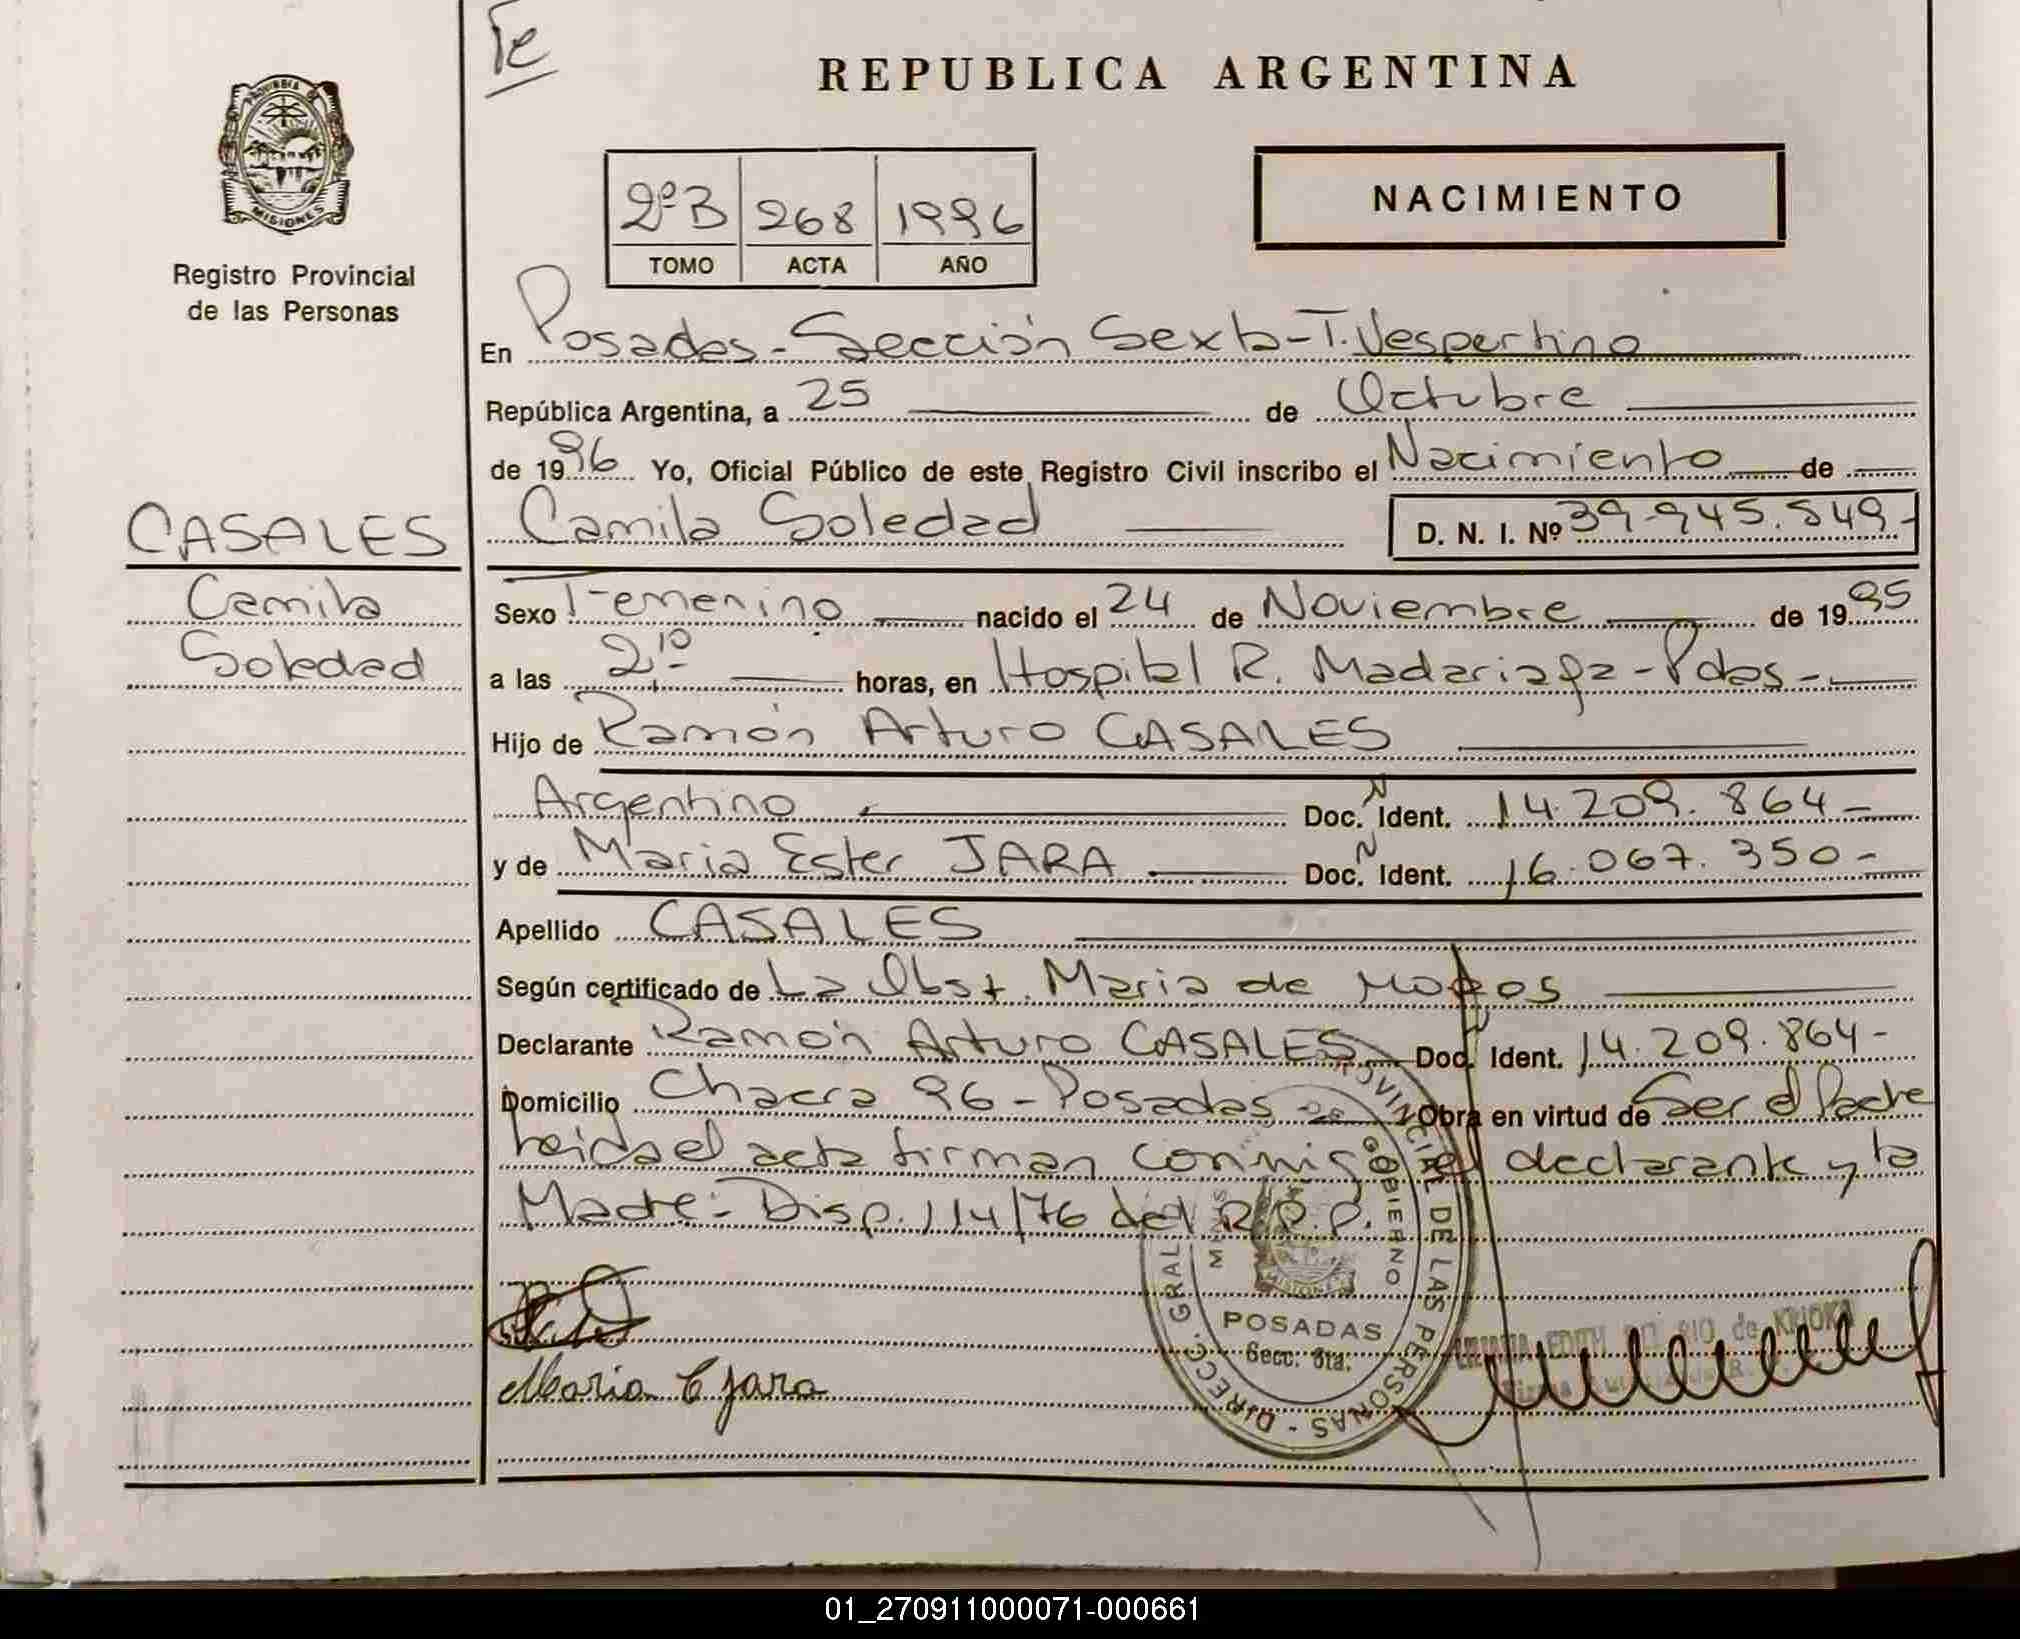 Te
REPUBLICA ARGENTINA
PROVINCIA DE
MISIONES
Registro Provincial
de las Personas
2º B 268 1996
TOMO ACTA AÑO
NACIMIENTO
En Posadas - Sección Sexta - T. Vespertino
República Argentina, a 25 de Octubre
de 1996 Yo, Oficial Público de este Registro Civil inscribo el Nacimiento de
CASALES
Camila Soledad
D. N. I. Nº 39.945.549-
Camila
Soledad
Sexo Femenino nacido el 24 de Noviembre de 1995
a las 2¹⁰ horas, en Hospital R. Madariaga - Pdas -
Hijo de Ramón Arturo CASALES
Argentino Doc. N Ident. 14.209.864-
y de Maria Ester JARA Doc. N Ident. 16.067.350-
Apellido CASALES
Según certificado de La Obst. Maria de
Declarante Ramón Arturo CASALES Doc. Ident. 14.209.864-
Domicilio Chacra 96 - Posadas - Obra en virtud de Ser el Padre
Leida el acta firman conmigo el declarante y la
Madre: Disp. 114/76 del R.P.P.
Maria E Jara
DIRECC. GRAL. PROVINCIAL DE LAS PERSONAS
GOBIERNO
MISIONES
POSADAS
Secc. 6ta.
EDITH DEL RIO de
01_270911000071-000661